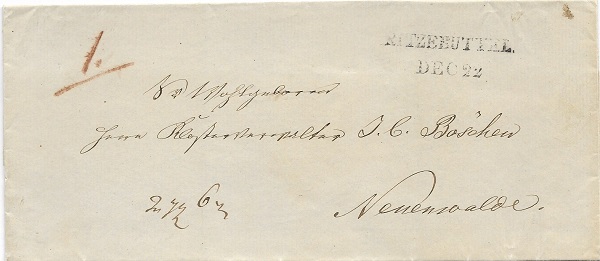 1.
RITZEBUTTEL.
DEC 22
Sr Wohlgeboren
Herrn Klosterverwalter J. C. Böschen
Neuenwalde.